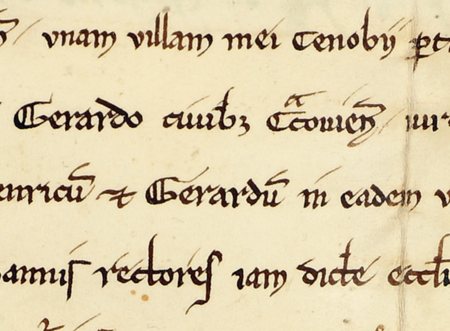 vnam villam mei cenobij
Gerardo ciuib₃ Cͣcouien̄
enricū ⁊ Gerardū in eadem v
annis rectores iam dictē eccl̄i